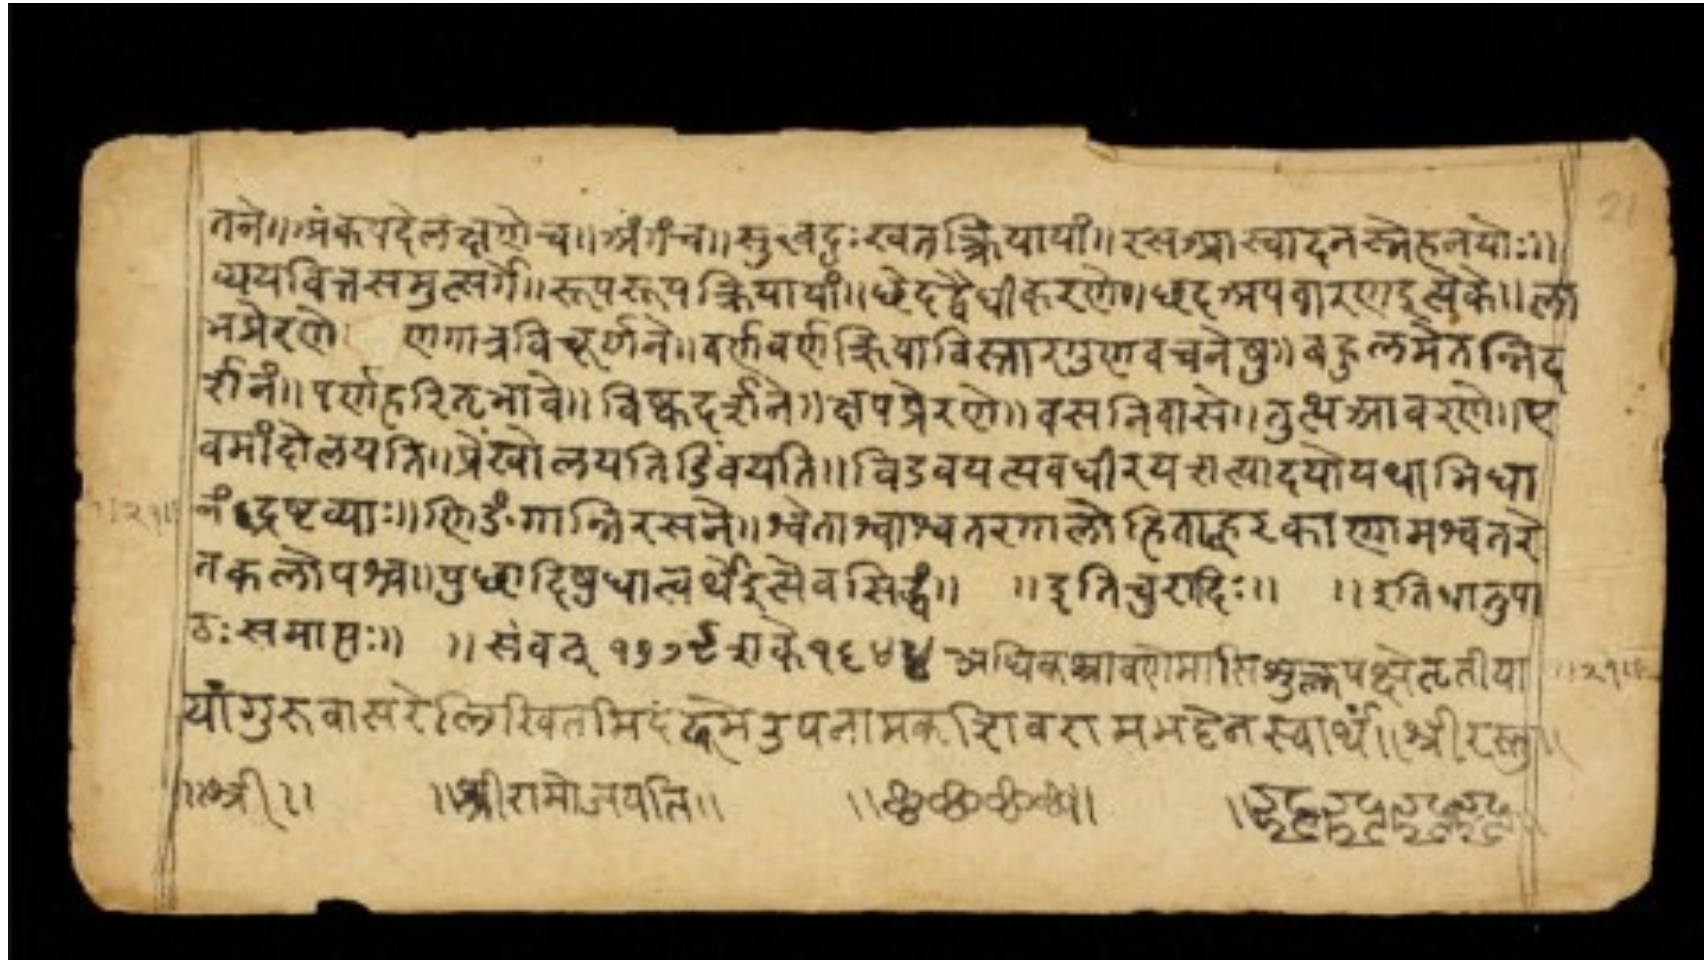 तने॥अंकपदेलक्षणेच॥अंगंच॥सुखदुःखतत्क्रियायां॥रसआस्वादनस्नेहनयोः॥
व्ययवित्तसमुत्सर्गे॥रूपरूपक्रियायां॥छेदद्वैधीकरणे॥छदअपवारणइत्येके॥ला
भप्रेरणे णगात्रविचूर्णने॥वर्णवर्णक्रियाविस्तारगुणवचनेषु॥बहुलमेतन्निद
र्शनं॥पर्णहरितभावे॥विष्कदर्शने॥क्षपप्रेरणे॥वसनिवासे॥तुत्थआवरणे॥ए
वमांदोलयति॥प्रेंखोलयतिडिंवयति॥विडवयत्यवधीरयत्यादयोयथाभिधा
नंद्रष्टव्याः॥णिङंगान्निरसने॥श्वेताश्वाश्वतरगालोहिताह्वरकाणामश्वतरे
तकलोपश्च॥पुछादिषुधात्वर्थेइत्येवसिद्धं॥ ॥इतिचुरादिः॥ ॥इतिधातुपा
ठः समाप्तः॥ ॥संवत् १७७९ शके१६४४ अधिकश्रावणेमासिशुक्लपक्षेतृतीया
यांगुरुवासरेलिखितमिदं उपनामकशिवरामभट्टेनस्वार्थं॥श्रीरस्तु॥
॥श्री॥ ॥श्रीरामोजयति॥
॥२१॥
॥२१॥
21